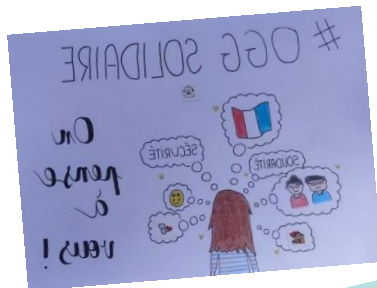 # OGG SOLIDAIRE
On
pense
à
vous !
SÉCURITÉ
SOLIDARITÉ